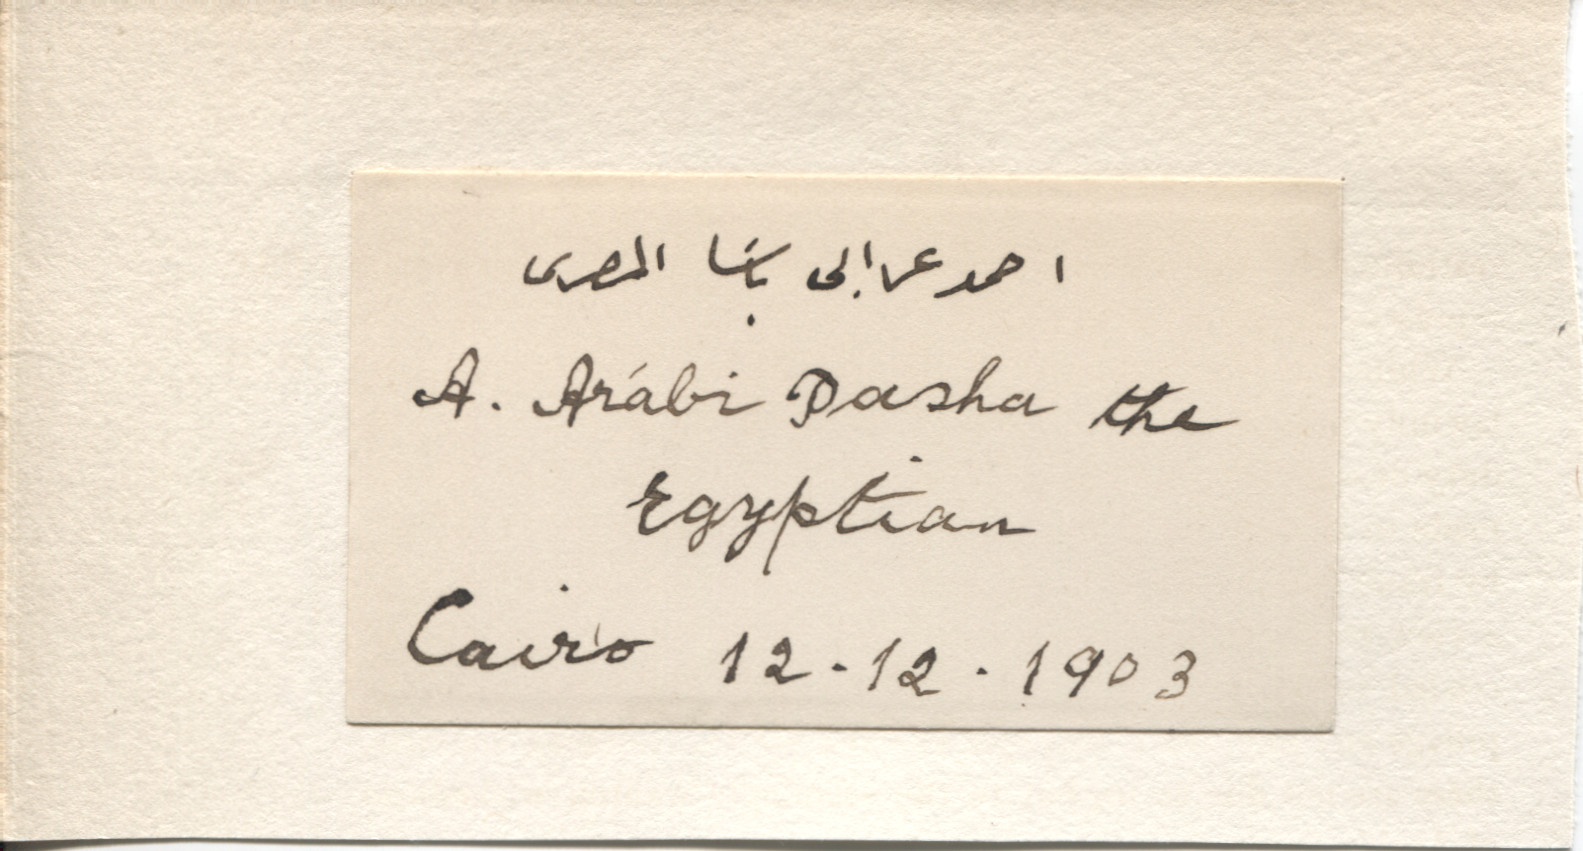 احمد عرابى باشا المصرى
A. Arábi Pasha the
Egyptian
Cairo 12-12-1903